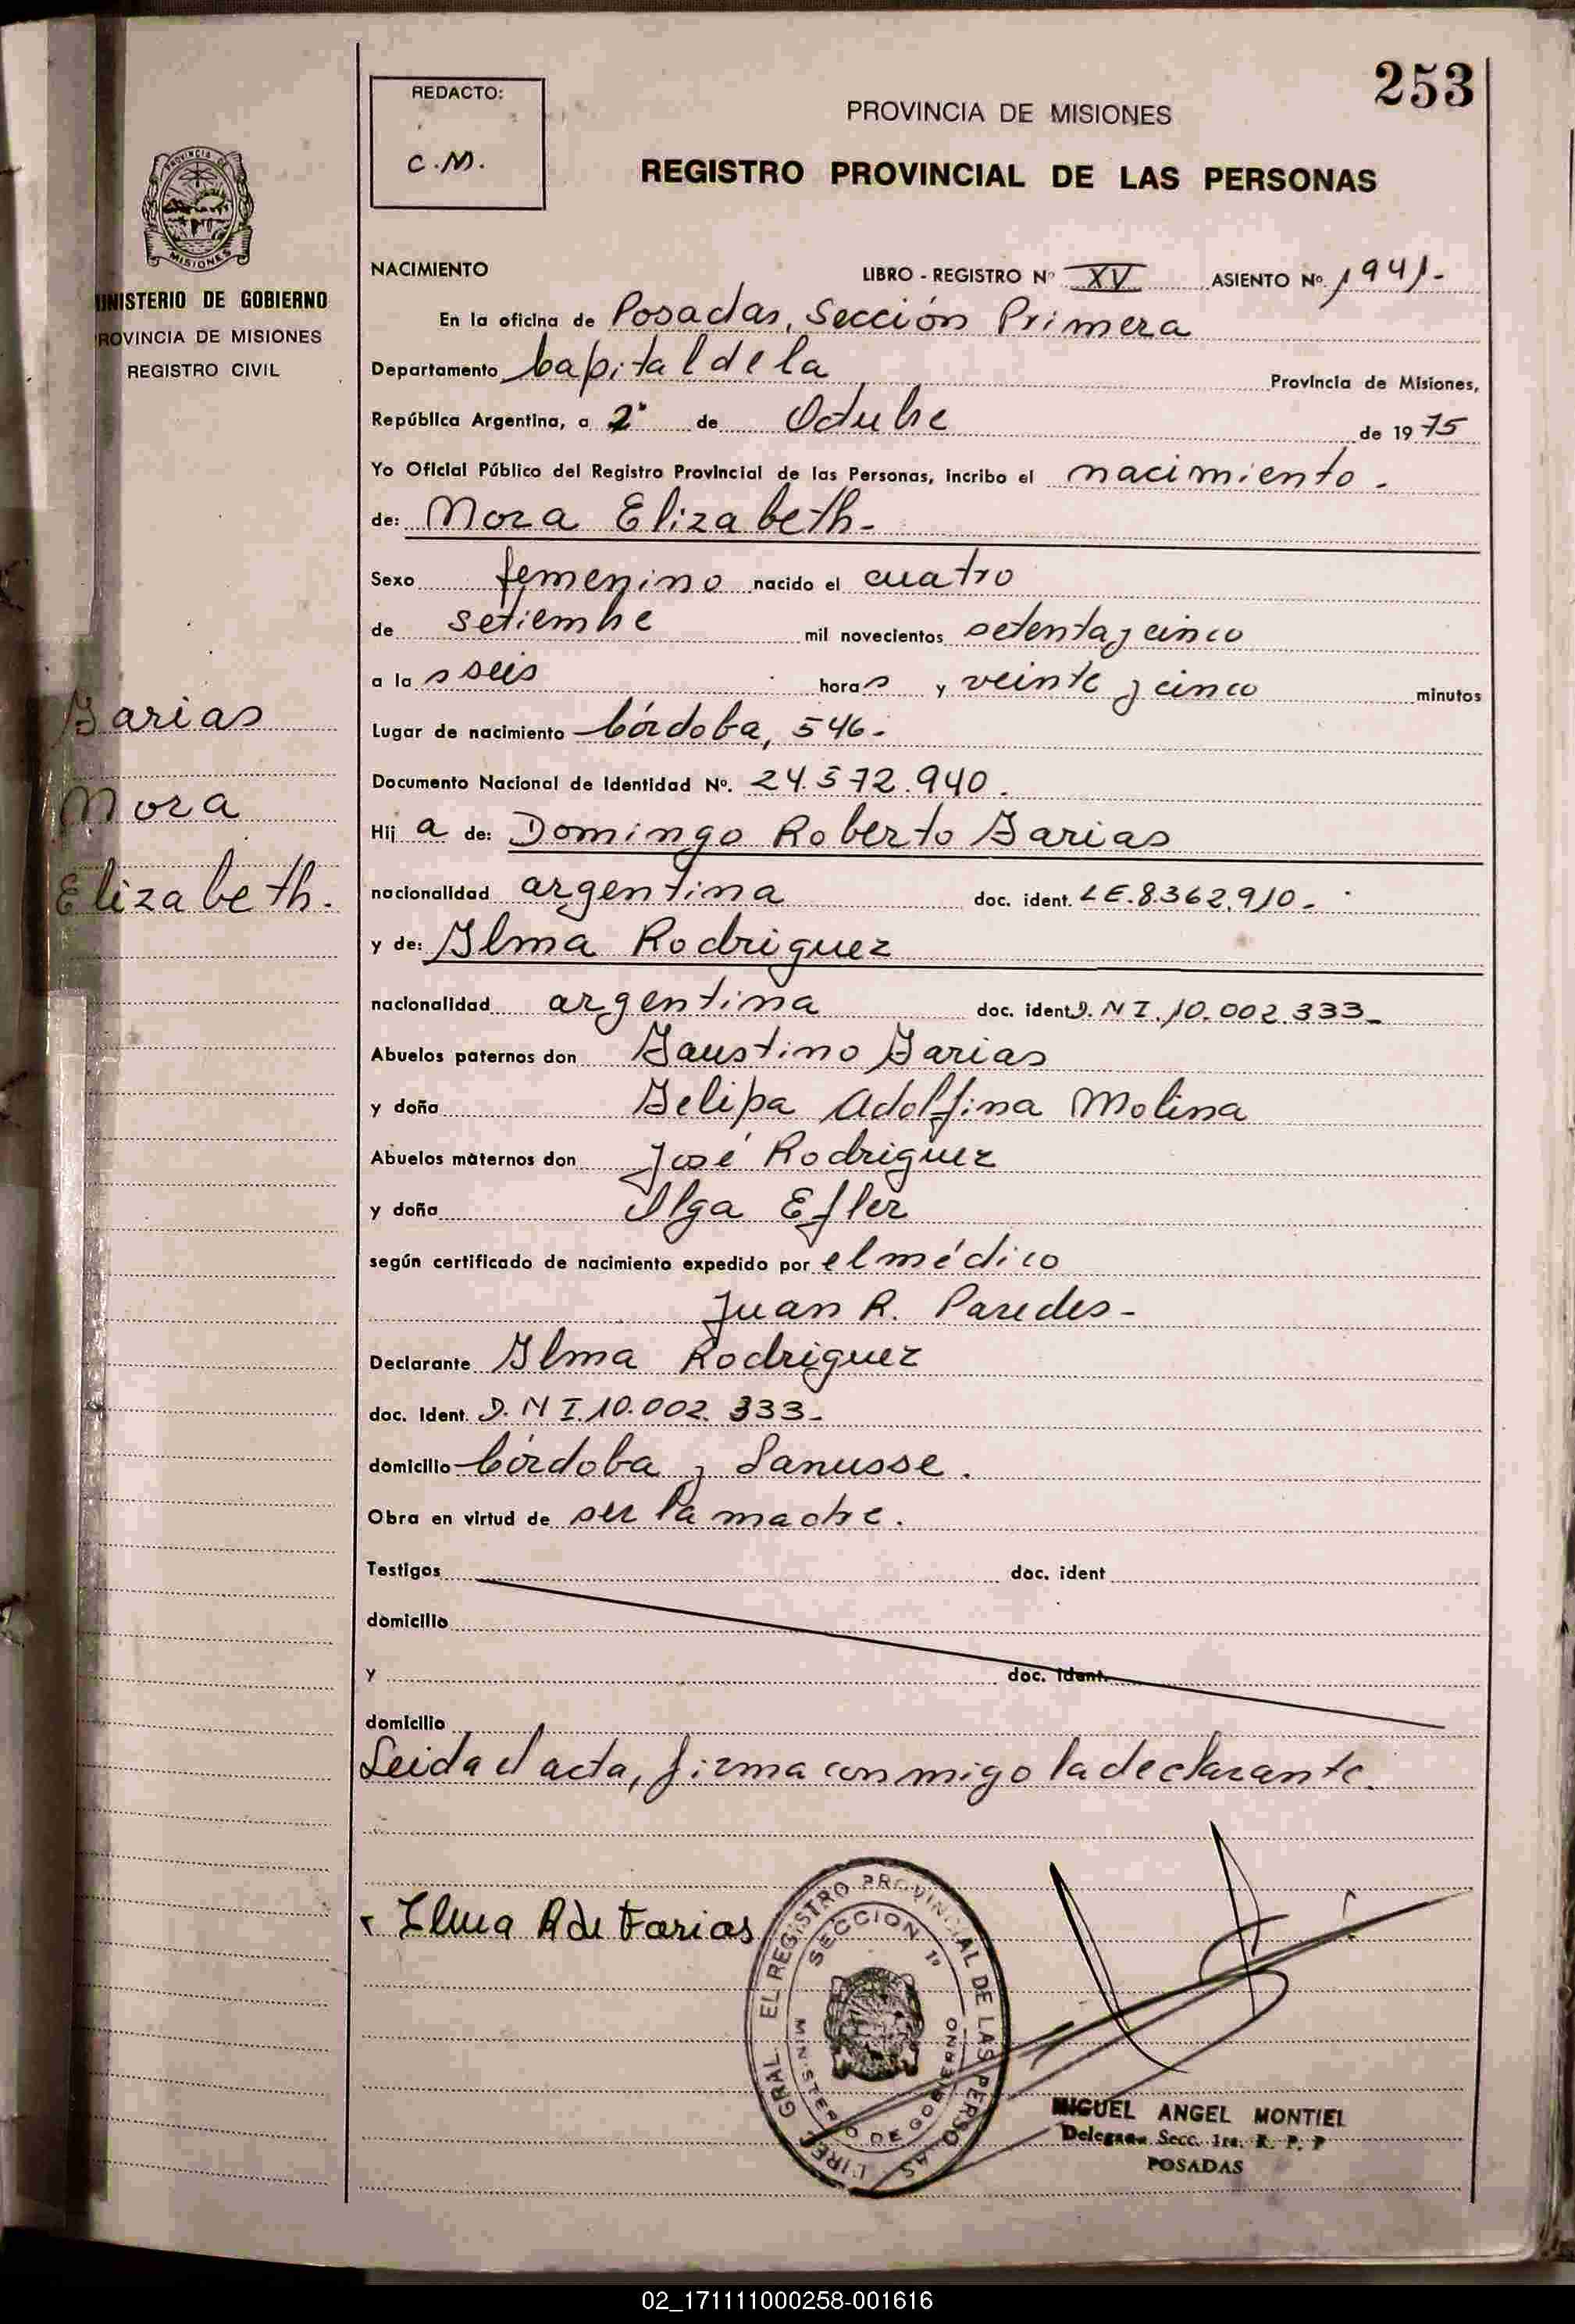 253
REDACTO:
C.M.
PROVINCIA DE MISIONES
REGISTRO PROVINCIAL DE LAS PERSONAS
MISIONES
MINISTERIO DE GOBIERNO
PROVINCIA DE MISIONES
REGISTRO CIVIL
Farias
Mora
Elizabeth.
NACIMIENTO LIBRO - REGISTRO Nº XV ASIENTO Nº 1941-
En la oficina de Posadas, Sección Primera
Departamento Capital de la Provincia de Misiones,
República Argentina, a 2º de Octubre de 1975
Yo Oficial Público del Registro Provincial de las Personas, incribo el nacimiento.
de: Mora Elizabeth-
Sexo femenino nacido el cuatro
de setiembre mil novecientos setenta y cinco
a las seis horas y veinte y cinco minutos
Lugar de nacimiento Córdoba, 546-
Documento Nacional de Identidad Nº. 24.572.940.
Hija de: Domingo Roberto Farias
nacionalidad argentina doc. ident. LE.8.362.910-
y de: Ilma Rodriguez
nacionalidad argentina doc. ident D.N I.10.002.333-
Abuelos paternos don Faustino Farias
y doña Felipa Adolfina Molina
Abuelos maternos don José Rodriguez
y doña Olga Efler
según certificado de nacimiento expedido por el médico
Juan R. Paredes-
Declarante Ilma Rodriguez
doc. Ident. D.N I.10.002.333-
domicilio Córdoba y Lanusse.
Obra en virtud de ser la madre.
Testigos doc. ident
domicilio
y doc. ident.
domicilio
Leida el acta, firma conmigo la declarante.
Ilma R de Farias
GRAL EL REGISTRO PROVINCIAL DE LAS PERSONAS
SECCION 1ª
MINISTERIO DE GOBIERNO
MIGUEL ANGEL MONTIEL
Delegado Secc. 1ra. R. P. P
POSADAS
02_171111000258-001616